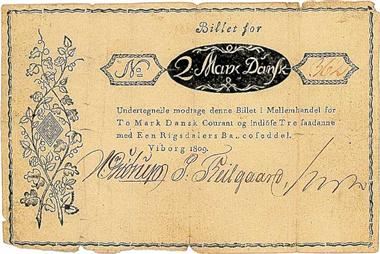 Billet for
No 2. Mark Dansk 362
Undertegnede modtage denne Billet i Mellemhandel for
To Mark Dansk Courant og indlöse Tre saadanne
med Een Rigsdalers Ba..coseddel.
Viborg 1809.